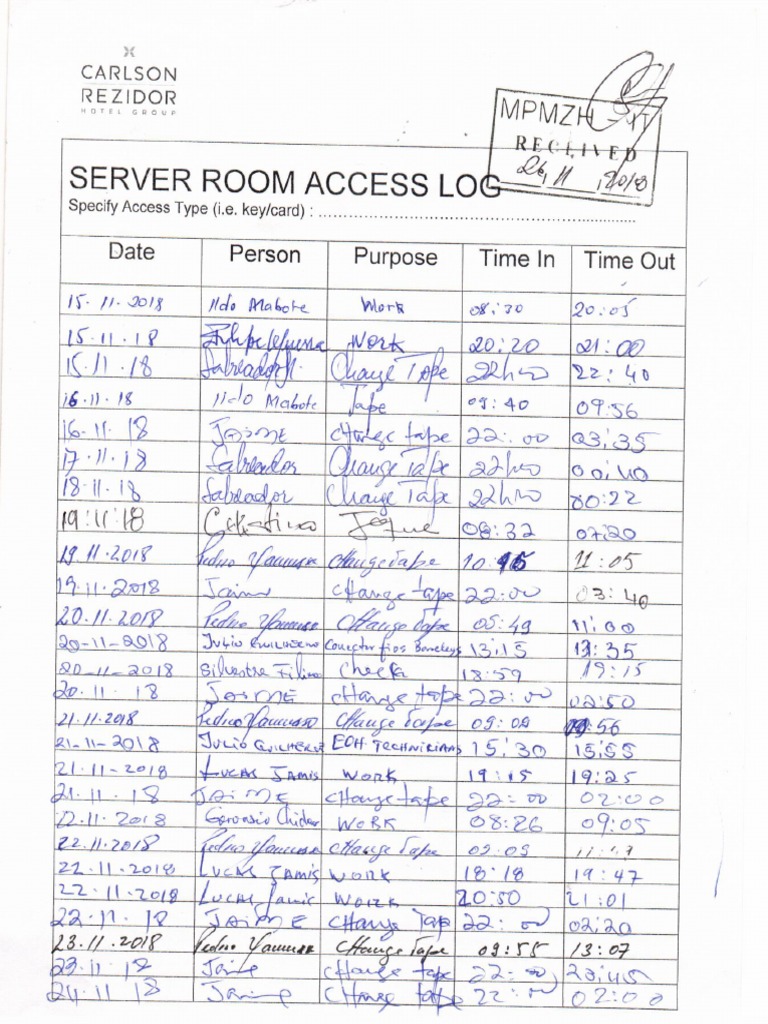 CARLSON
REZIDOR
HOTEL GROUP
MPMZH - IT
RECEIVED
26, 11, 2018
SERVER ROOM ACCESS LOG
Specify Access Type (i.e. key/card) : ................................................
Date Person Purpose Time In Time Out
15.11.2018 Ildo Mabote Work 08:30 20:05
15.11.18 Work 20:20 21:00
15.11.18 Labreador Change Tape 22h00 22:40
16.11.18 Ildo Mabote Tape 09:40 09:56
16.11.18 JAIME change tape 22:00 03:35
17.11.18 Labreador Change Tape 22h00 00:40
18.11.18 Labreador Change Tape 22h00 00:22
19:11:18 Celestino 07:20
19.11.2018 Pedro change Tape 10:15 11:05
19.11.2018 Jaime change tape 22:00 03:40
20.11.2018 Pedro Change Tape 11:00
20-11-2018 Julio 13:15 13:35
20-11-2018 Silvestre Check 18:59 19:15
20.11.18 JAIME change tape 22:00 02:50
21.11.2018 Pedro Change Tape 09:09 :56
21-11-2018 Julio Guilherme EOH Technicians 15:30 15:55
21.11-2018 Lucas Jamis Work 19:15 19:25
21.11.18 JAIME change tape 22:00 02:00
22.11.2018 Gervasio Work 08:26 09:05
22.11.2018 Pedro change Tape 09:09
22.11.2018 Lucas Jamis Work 18:18 19:47
22.11.2018 Lucas Jamis Work 20:50 21:01
22.11.18 JAIME Change Tape 22:00 02:20
23.11.2018 Pedro Change Tape 09:55 13:07
23.11.18 Jaime change tape 22:00
24.11.18 Jaime change tape 22:00 02:00